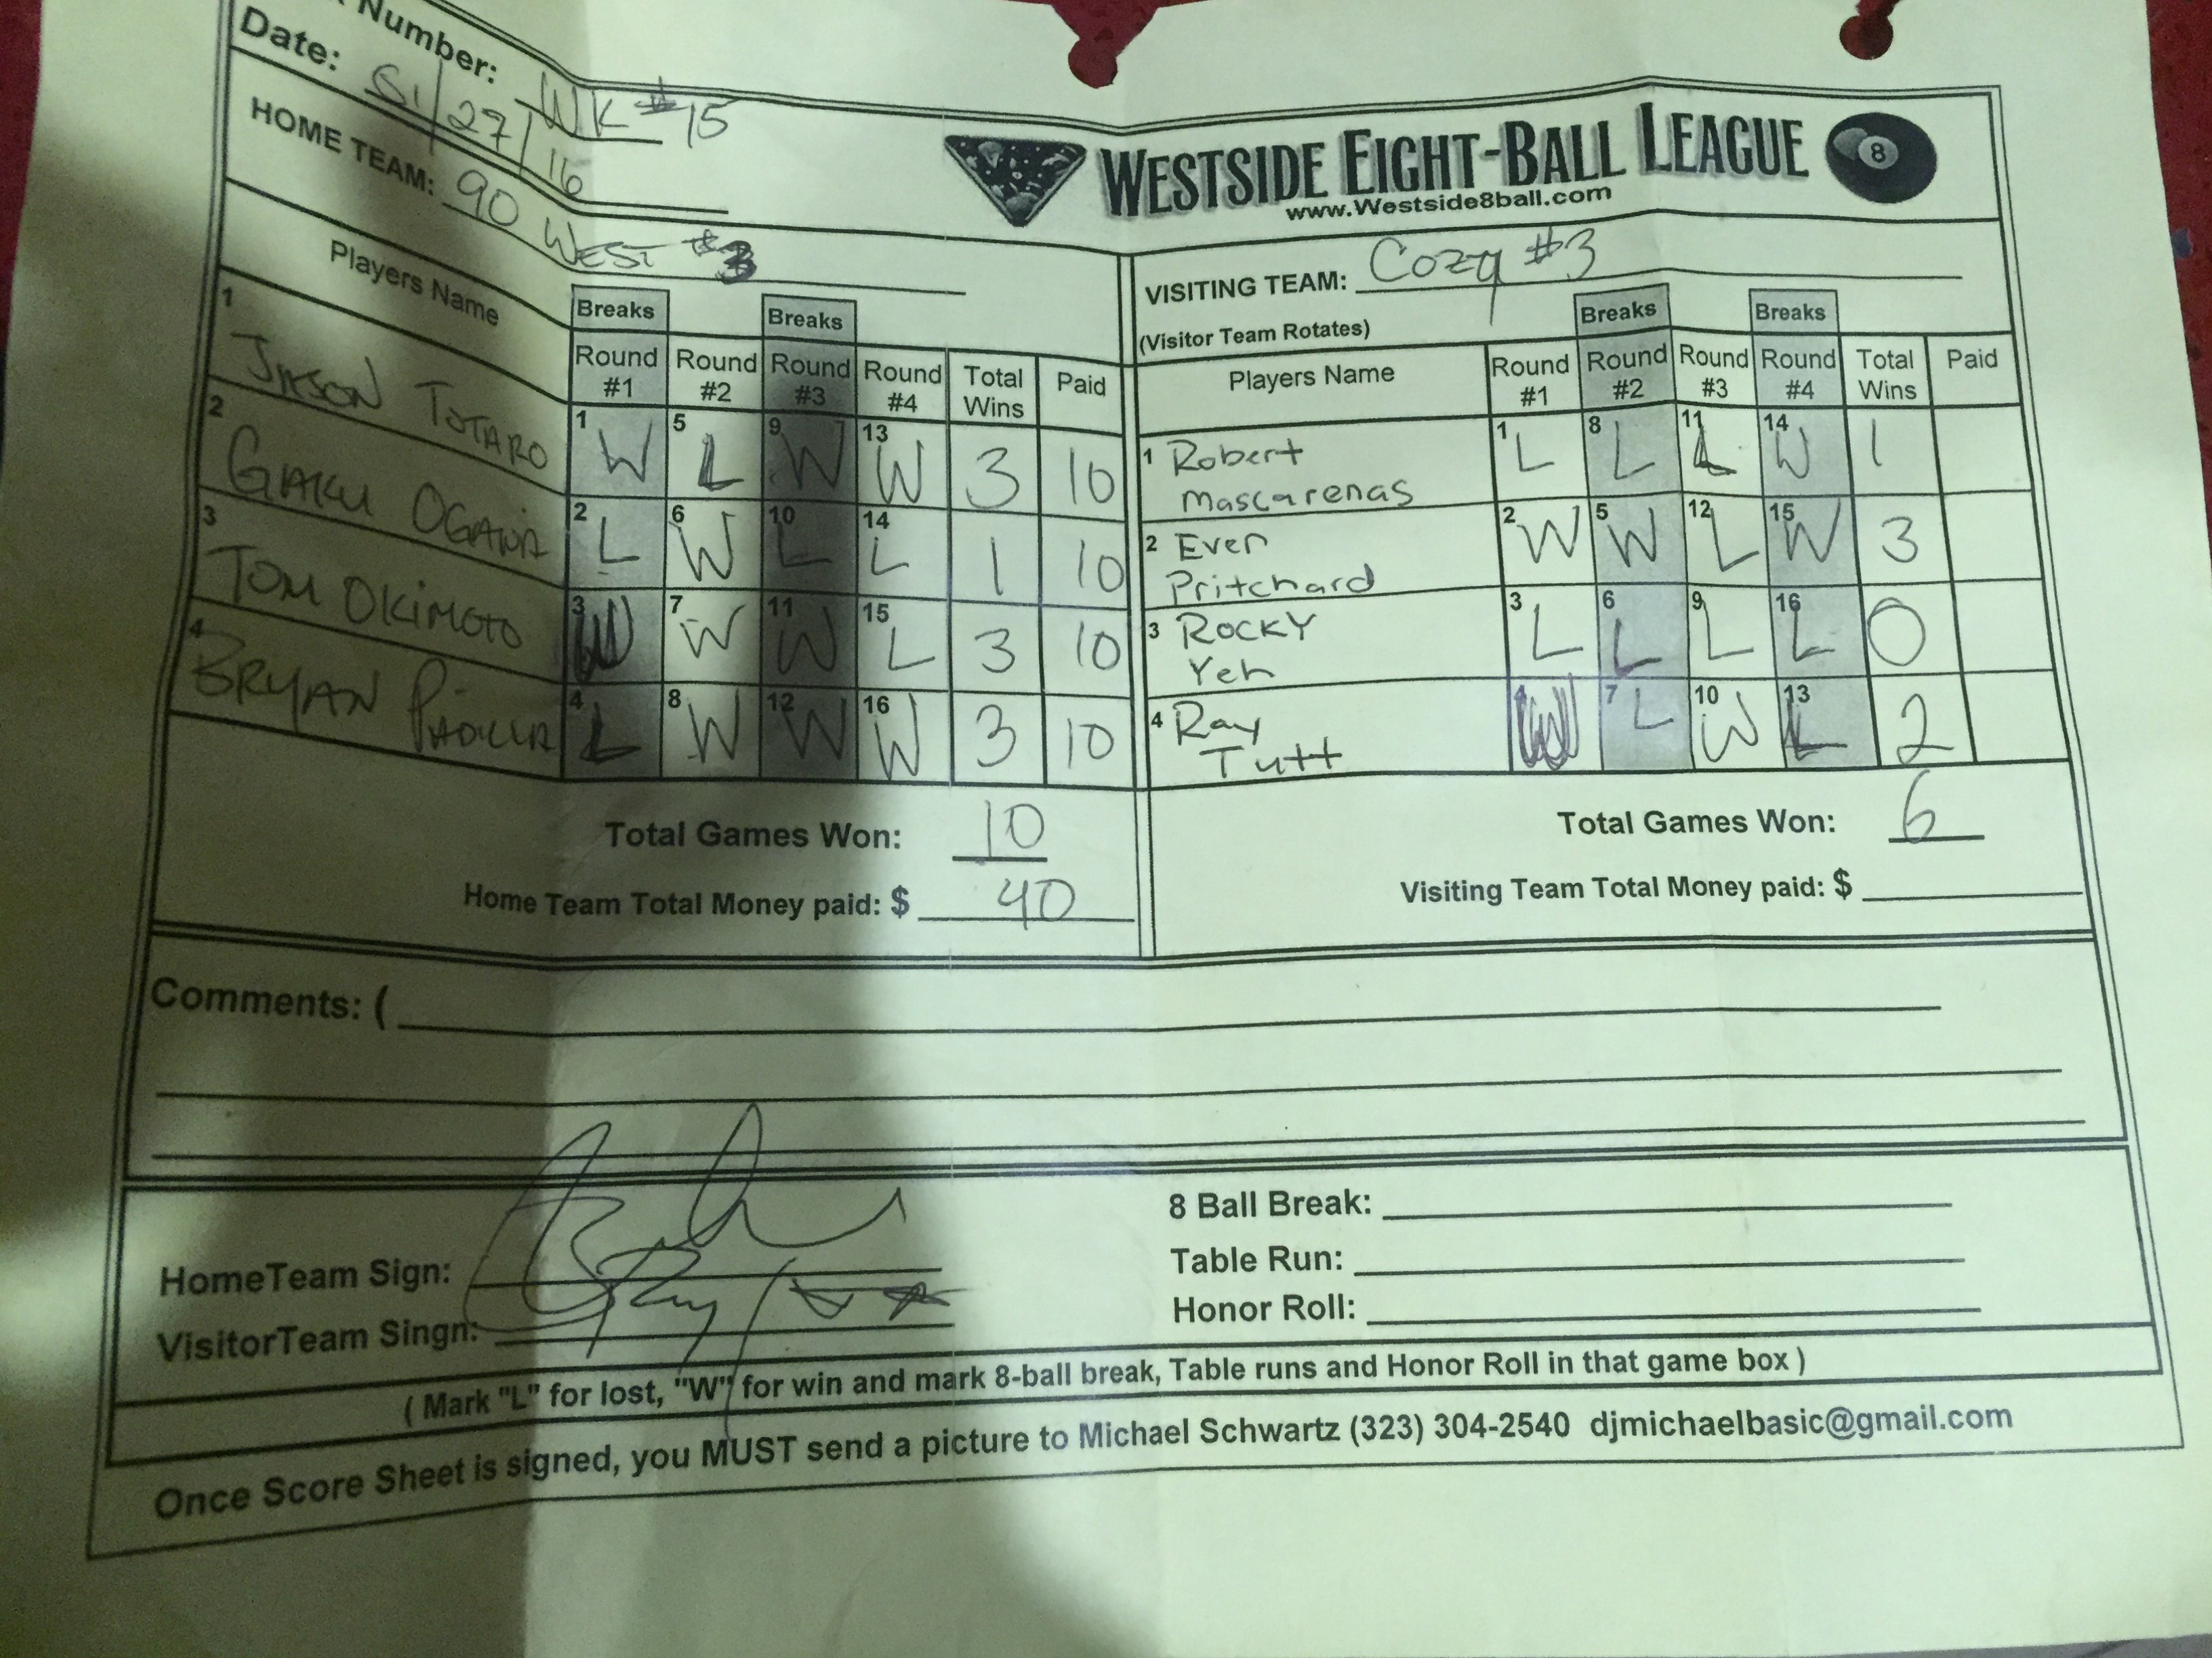 Number: WK #15
Date: 01/27/16
WESTSIDE EIGHT-BALL LEAGUE 8
www.Westside8ball.com
HOME TEAM: 90 WEST #3
VISITING TEAM: Cozy #3
(Visitor Team Rotates)
Players Name
Breaks Breaks
Round #1 Round #2 Round #3 Round #4 Total Wins Paid
1 JASON TOTARO 1 W 5 L 9 W 13 W 3 10
2 GAKU OGAWA 2 L 6 W 10 L 14 L 1 10
3 TOM OKIMOTO 3 W 7 W 11 W 15 L 3 10
4 BRYAN PADILLA 4 L 8 W 12 W 16 W 3 10
Total Games Won: 10
Home Team Total Money paid: $ 40
Breaks Breaks
Players Name Round #1 Round #2 Round #3 Round #4 Total Wins Paid
1 Robert Mascarenas 1 L 8 L 11 L 14 W 1
2 Ever Pritchard 2 W 5 W 12 L 15 W 3
3 ROCKY Yeh 3 L 6 L 9 L 16 L 0
4 Ray Tutt 4 W 7 L 10 W 13 L 2
Total Games Won: 6
Visiting Team Total Money paid: $
Comments: (
HomeTeam Sign:
VisitorTeam Singn: Ray
8 Ball Break:
Table Run:
Honor Roll:
( Mark "L" for lost, "W" for win and mark 8-ball break, Table runs and Honor Roll in that game box )
Once Score Sheet is signed, you MUST send a picture to Michael Schwartz (323) 304-2540 djmichaelbasic@gmail.com